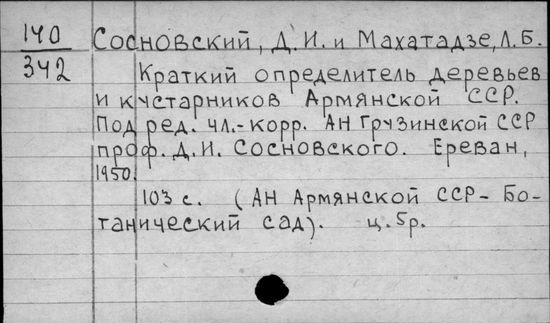 140
342
Сосновский, Д. И. и Махатадзе, Л. Б.
Краткий определитель деревьев
и кустарников Армянской ССР.
Под ред. чл.-корр. АН Грузинской ССР
проф. Д. И. Сосновского. Ереван,
1950.
103 с. (АН Армянской ССР - Бо-
танический сад). ц. 5р.